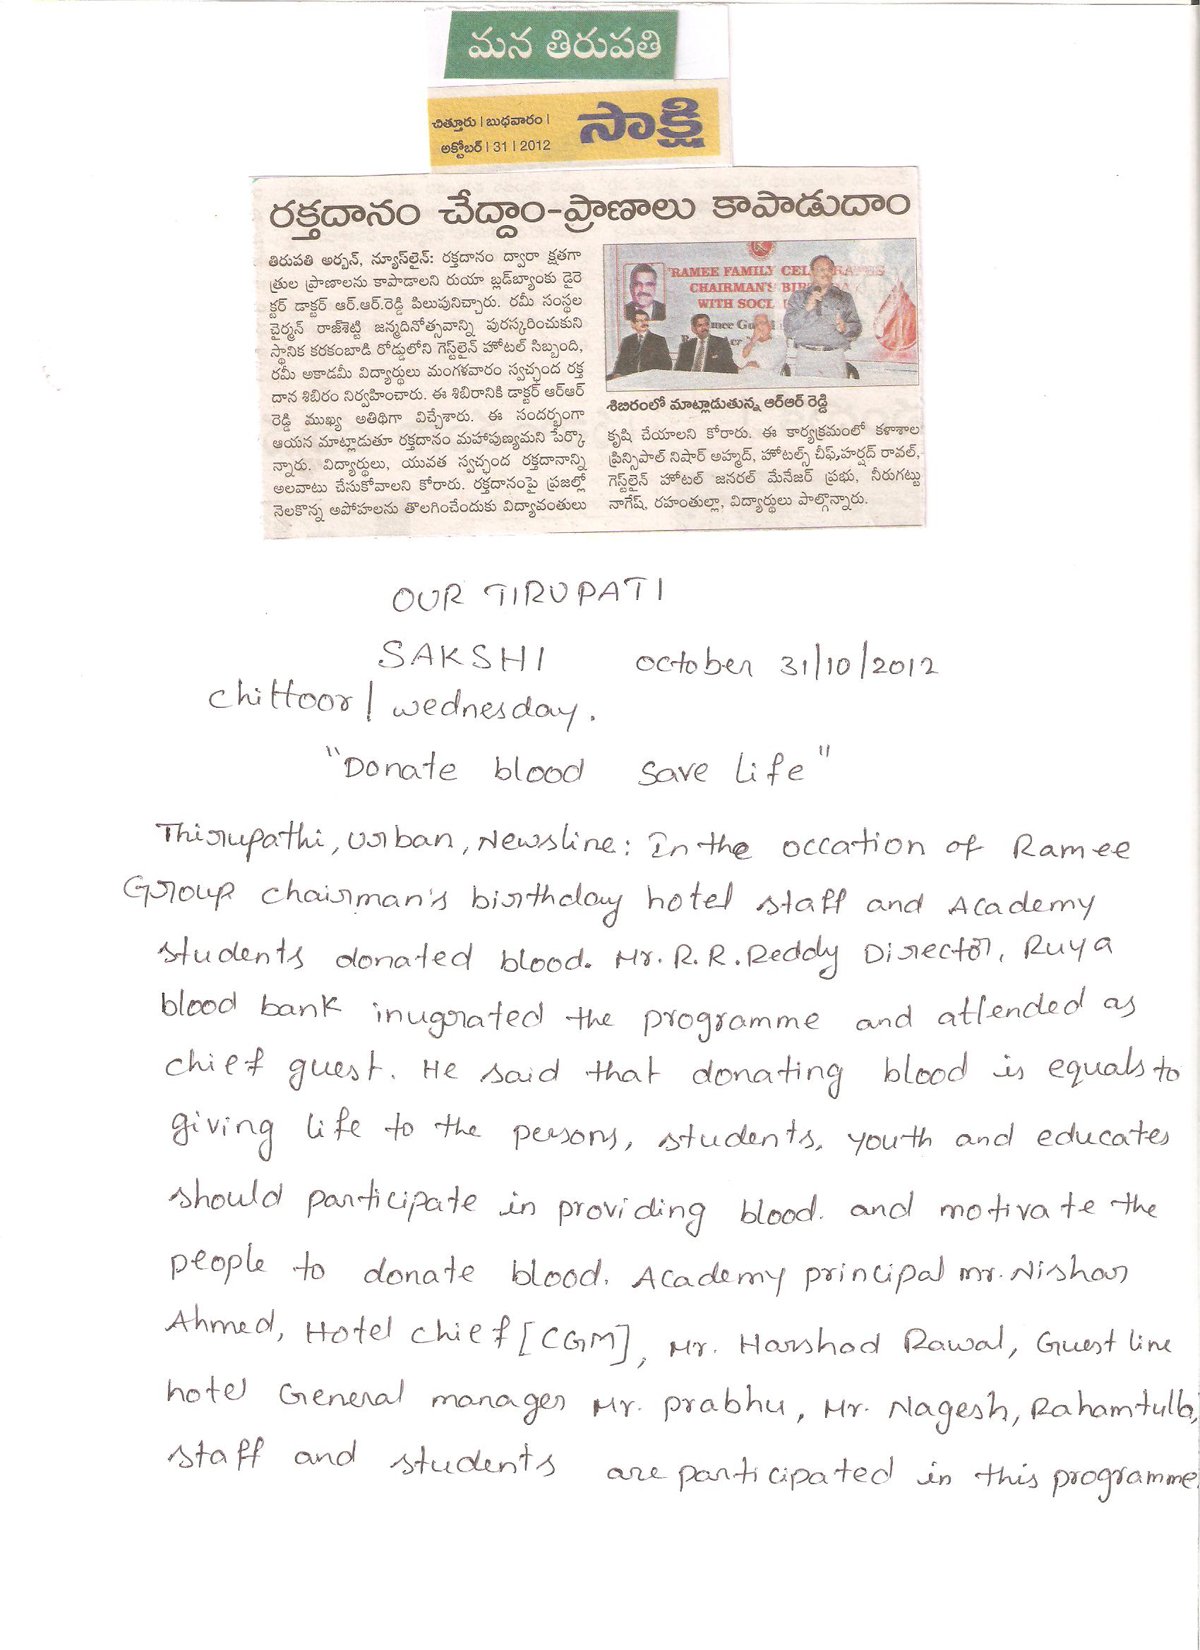 మన తిరుపతి
చిత్తూరు | బుధవారం |
అక్టోబర్ | 31 | 2012
సాక్షి
రక్తదానం చేద్దాం-ప్రాణాలు కాపాడుదాం
తిరుపతి అర్బన్, న్యూస్‌లైన్: రక్తదానం ద్వారా క్షతగా
త్రుల ప్రాణాలను కాపాడాలని రుయా బ్లడ్‌బ్యాంకు డైరె
క్టర్ డాక్టర్ ఆర్.ఆర్.రెడ్డి పిలుపునిచ్చారు. రమీ సంస్థల
చైర్మన్ రాజ్‌శెట్టి జన్మదినోత్సవాన్ని పురస్కరించుకుని
స్థానిక కరకంబాడి రోడ్డులోని గెస్ట్‌లైన్ హోటల్ సిబ్బంది,
రమీ అకాడమీ విద్యార్థులు మంగళవారం స్వచ్ఛంద రక్త
దాన శిబిరం నిర్వహించారు. ఈ శిబిరానికి డాక్టర్ ఆర్ఆర్
రెడ్డి ముఖ్య అతిథిగా విచ్చేశారు. ఈ సందర్భంగా
ఆయన మాట్లాడుతూ రక్తదానం మహాపుణ్యమని పేర్కొ
న్నారు. విద్యార్థులు, యువత స్వచ్ఛంద రక్తదానాన్ని
అలవాటు చేసుకోవాలని కోరారు. రక్తదానంపై ప్రజల్లో
నెలకొన్న అపోహలను తొలగించేందుకు విద్యావంతులు
RAMEE FAMILY CELEBRATES
CHAIRMAN'S BIRTHDAY
WITH SOCI
mee Gu
శిబిరంలో మాట్లాడుతున్న ఆర్ఆర్ రెడ్డి
కృషి చేయాలని కోరారు. ఈ కార్యక్రమంలో కళాశాల
ప్రిన్సిపాల్ నిషార్ అహ్మద్, హోటల్స్ చీఫ్,హర్షద్ రావల్,
గెస్ట్‌లైన్ హోటల్ జనరల్ మేనేజర్ ప్రభు, నీరుగట్టు
నాగేష్, రహంతుల్లా, విద్యార్థులు పాల్గొన్నారు.
OUR TIRUPATI
SAKSHI October 31/10/2012
Chittoor| wednesday.
"Donate blood save life"
Thirupathi, Urban, Newsline: In the occation of Ramee
Group chairman's birthday hotel staff and Academy
students donated blood. Mr. R.R. Reddy Director, Ruya
blood bank inugrated the programme and attended as
chief guest. He said that donating blood is equals to
giving life to the persons, students, youth and educates
should participate in providing blood. and motivate the
people to donate blood. Academy principal mr. Nishar
Ahmed, Hotel chief [CGM], Mr. Harshad Rawal, Guest line
hotel General manager Mr. prabhu, Mr. Nagesh, Rahamtulla,
staff and students are participated in this programme.